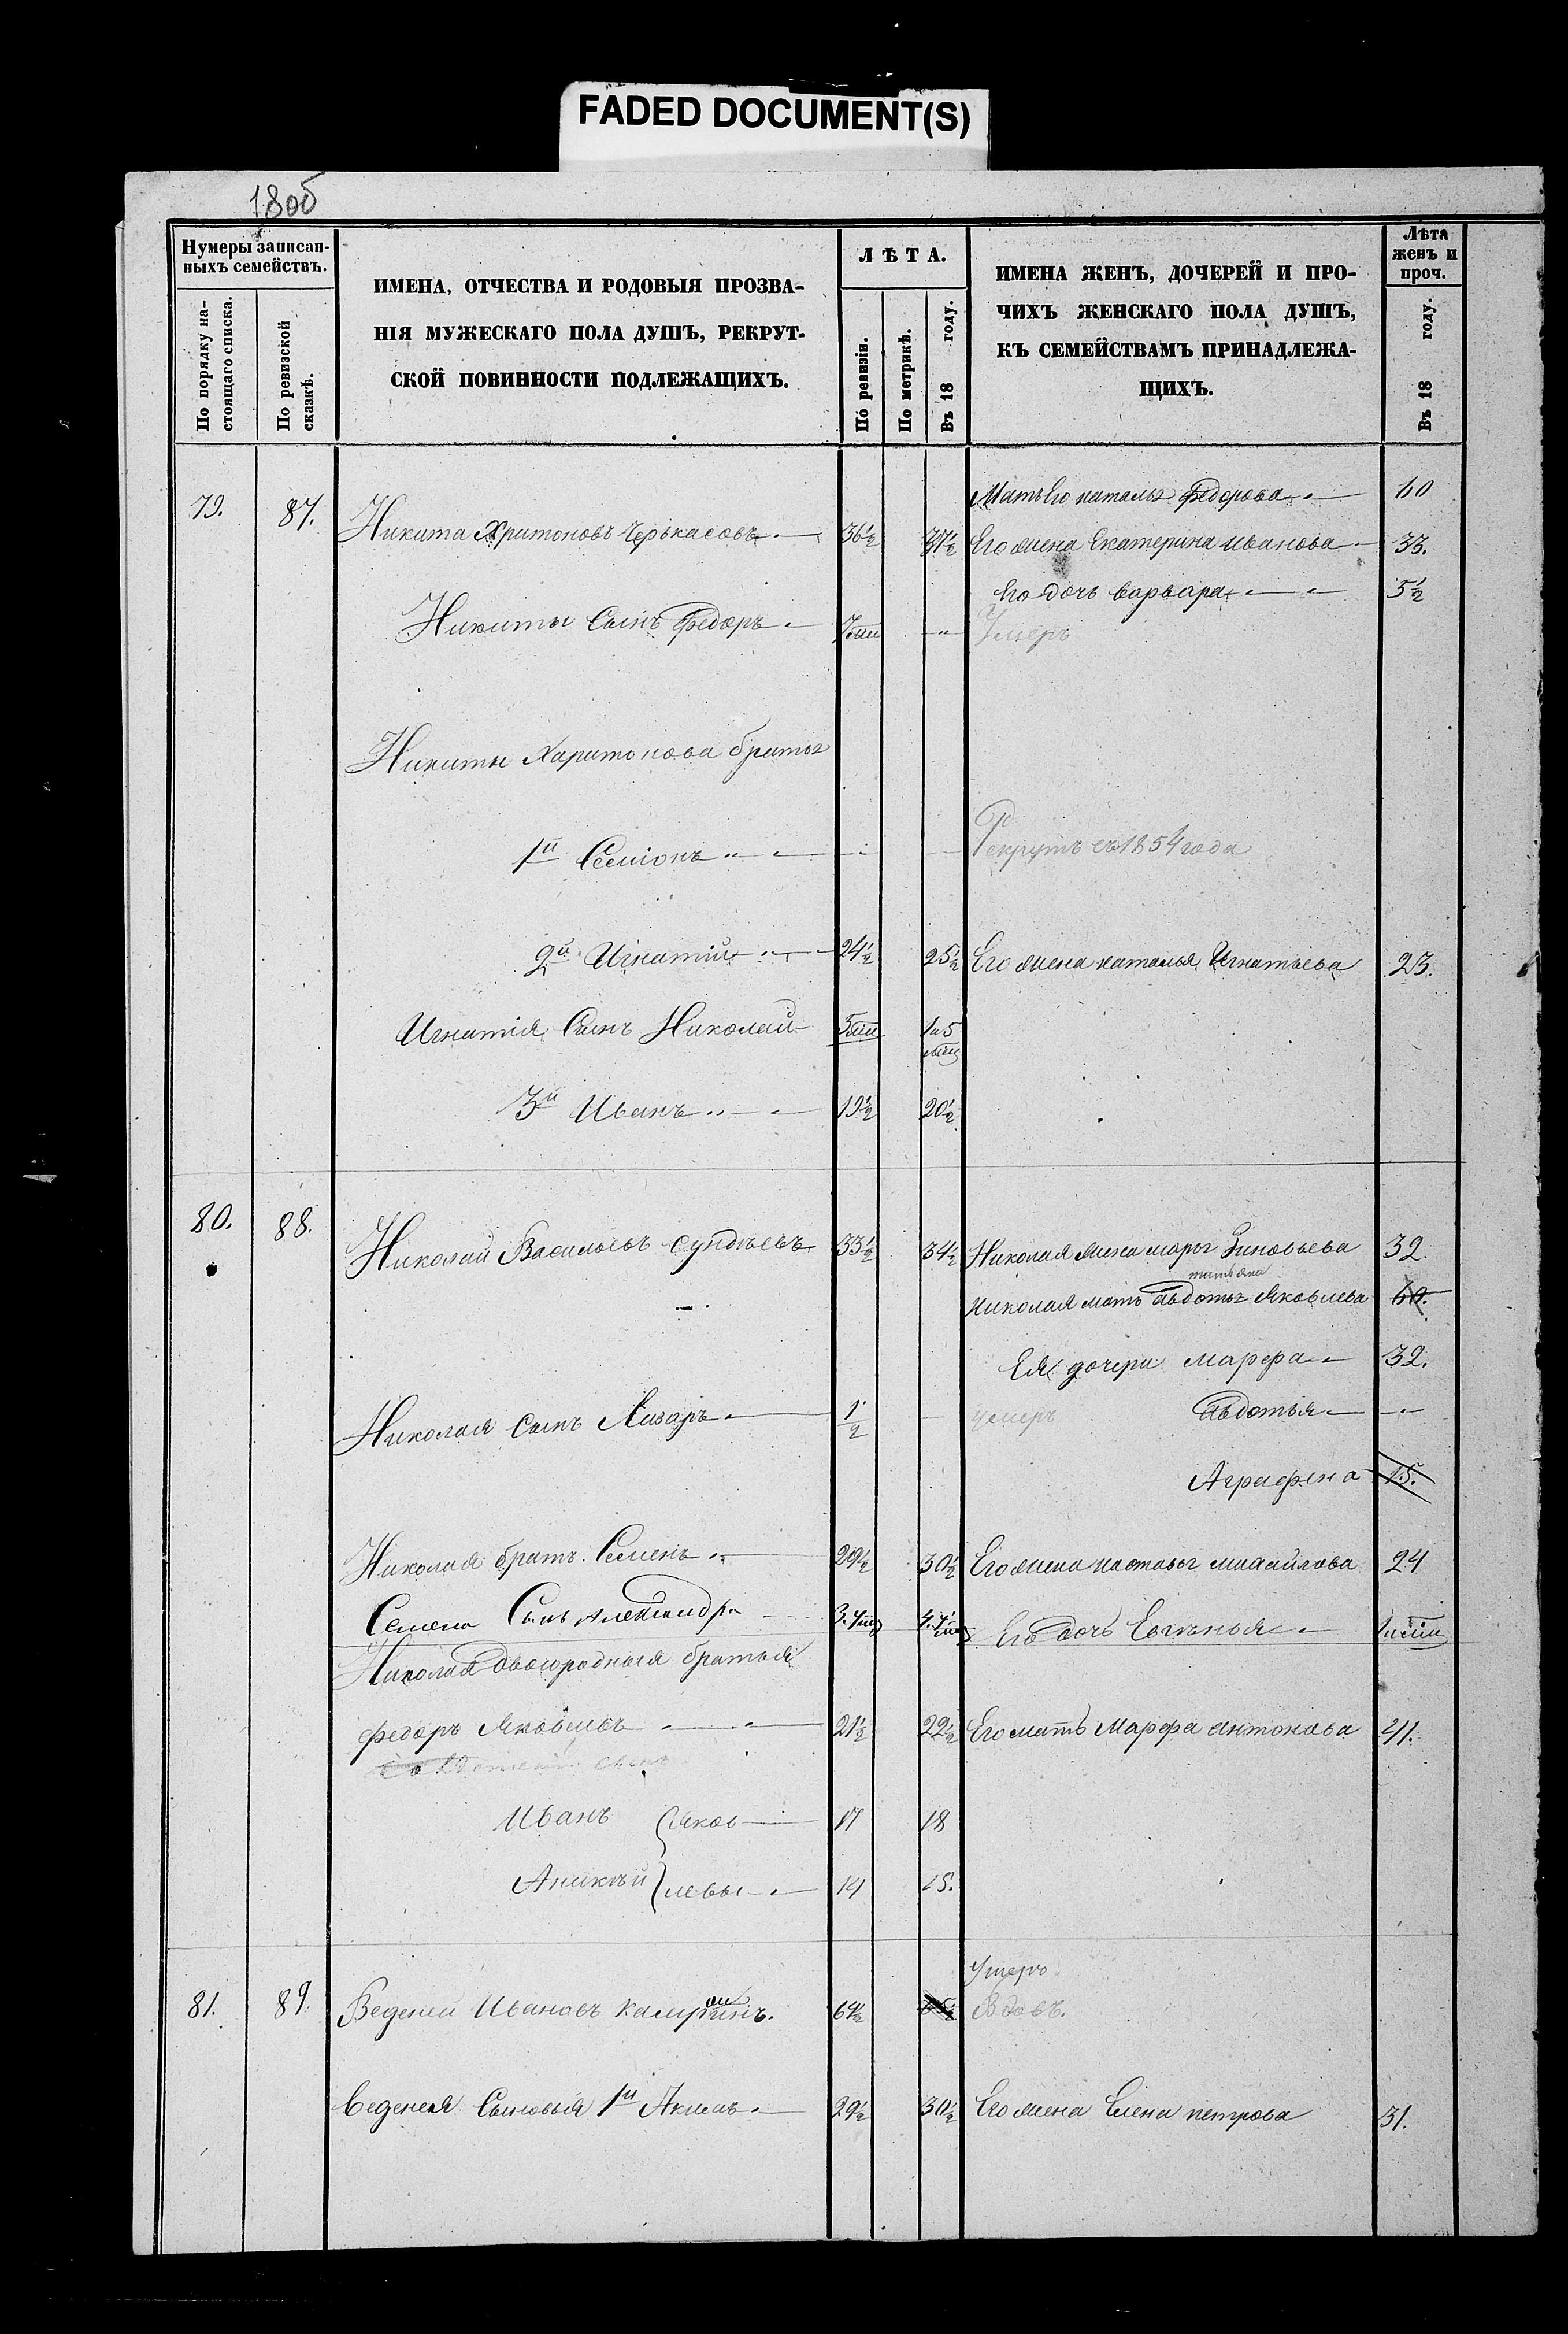 FADED DOCUMENT(S)
180б
Нумеры записан-
ныхъ семействъ.
По порядку на-
стоящаго списка.
По ревизской
сказкѣ.
ИМЕНА, ОТЧЕСТВА И РОДОВЫЯ ПРОЗВА-
НІЯ МУЖЕСКАГО ПОЛА ДУШЪ, РЕКРУТ-
СКОЙ ПОВИННОСТИ ПОДЛЕЖАЩИХЪ.
ЛѢТА.
По ревизіи.
По метрикѣ.
Въ 18 году.
ИМЕНА ЖЕНЪ, ДОЧЕРЕЙ И ПРО-
ЧИХЪ ЖЕНСКАГО ПОЛА ДУШЪ,
КЪ СЕМЕЙСТВАМЪ ПРИНАДЛЕЖА-
ЩИХЪ.
Лѣта
женъ и
проч.
Въ 18 году.
Мать Его наталья федорова 60
79. 87. Никита Хритоновъ Черькасовъ 36½ 37½ Его жена Екатерина иванова 33.
Его дочь варвара 5½
Никиты Сынъ Федоръ 7 Умеръ
Никиты Харитонова братья
1й Семіонъ Рекрутъ съ 1854 года
2й Игнатій 24½ 25½ Его жена наталья Игнатьева 23.
Игнатія Сынъ Николай 5 1 и 5
3й Иванъ 19½ 20½
80. 88. Николай Васильевъ 33½ 34½ Николая жена марья Зиновьева 32.
татьяна
николая мать авдотья Яковлева 60.
Ея дочери марфа 32.
Николая сынъ Лазарь 1/2 умеръ Авдотья
Аграфена 15.
Николая братъ Семенъ 29½ 30½ Его жена настасья михайлова 24
Семена Сынъ Александръ 3. 4. Его дочь Евгенья 1
Николая двоюродныя братья
федоръ Яковлевъ 21½ 22½ Его мать Марфа антонова 41.
сынъ
Иванъ Яков 17 18
Аникѣй левы 14 15.
Умеръ
81. 89. Веденей Ивановъ 64½ 65½ Вдовъ.
Веденея Сыновья 1й Акимъ 29½ 30½ Его жена Елена петрова 31.